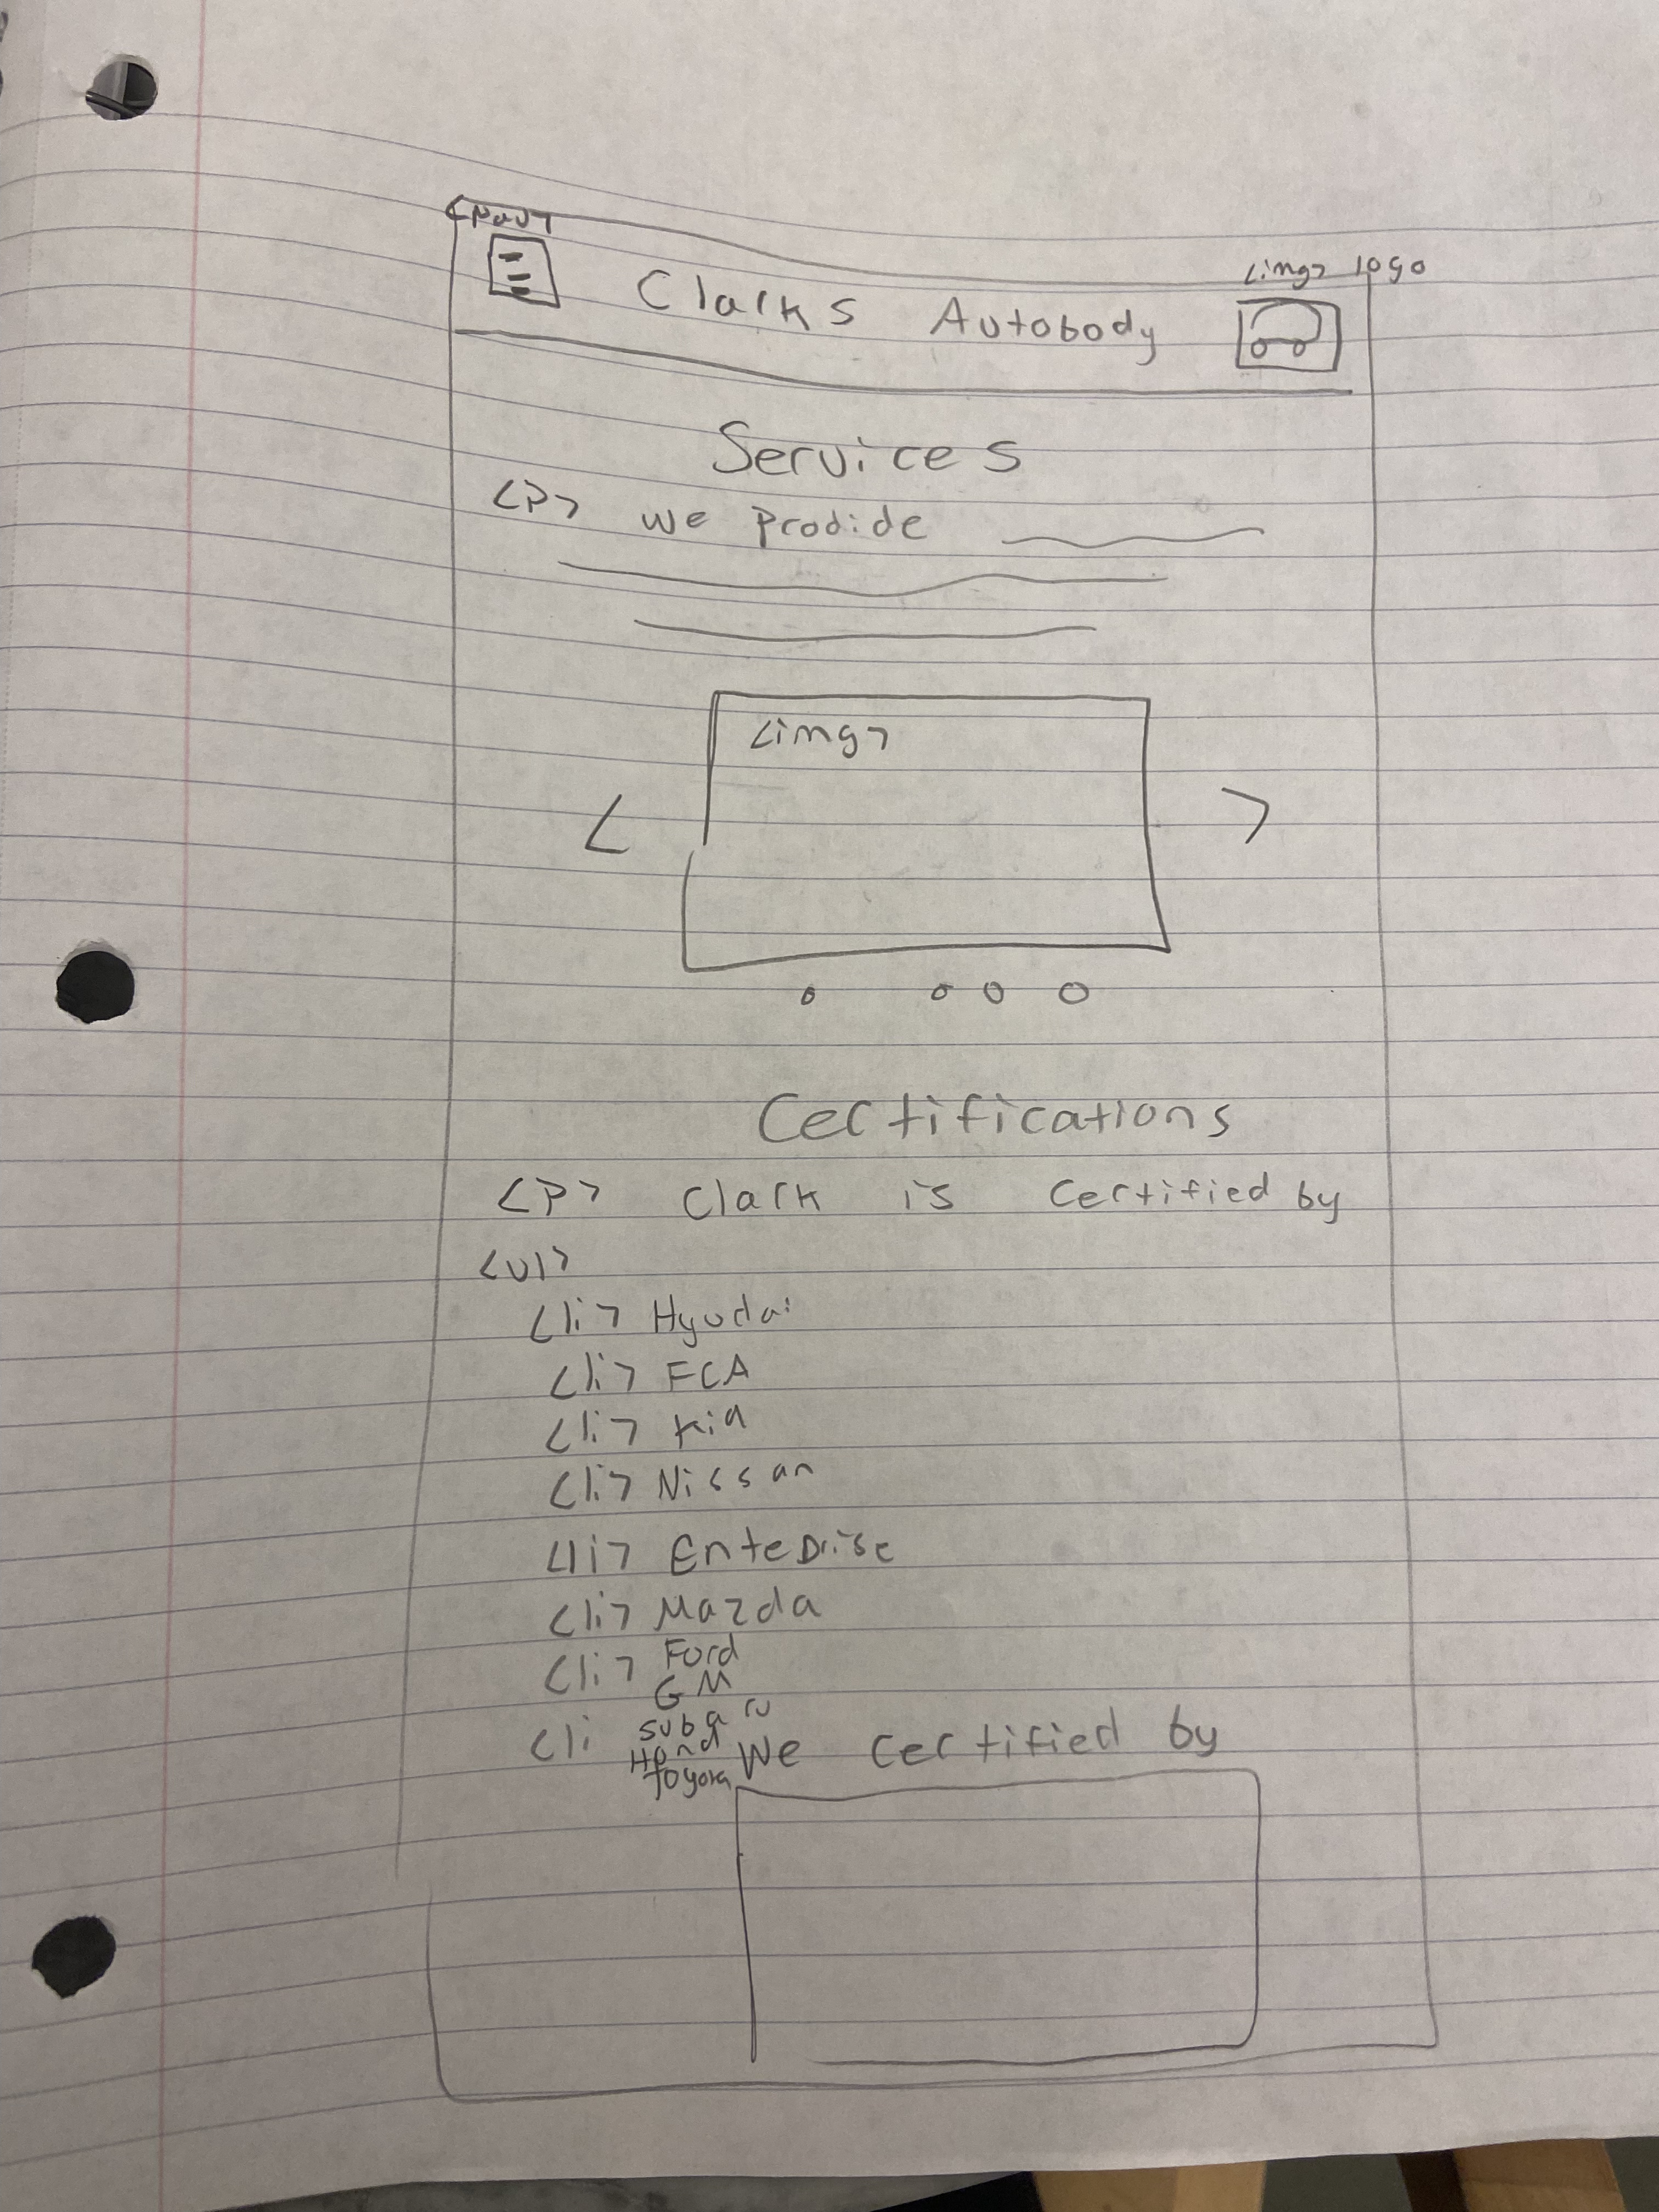 <nav>
<img> logo
Clarks Autobody
Services
<P> we Prodide
<img>
< >
Certifications
<P> Clark is Certified by
<ul>
<li> Hyudai
<li> FCA
<li> Kia
<li> Nissan
<li> Enteprise
<li> Mazda
<li> Ford
GM
<li subaru
Hond
toyora
We Certified by